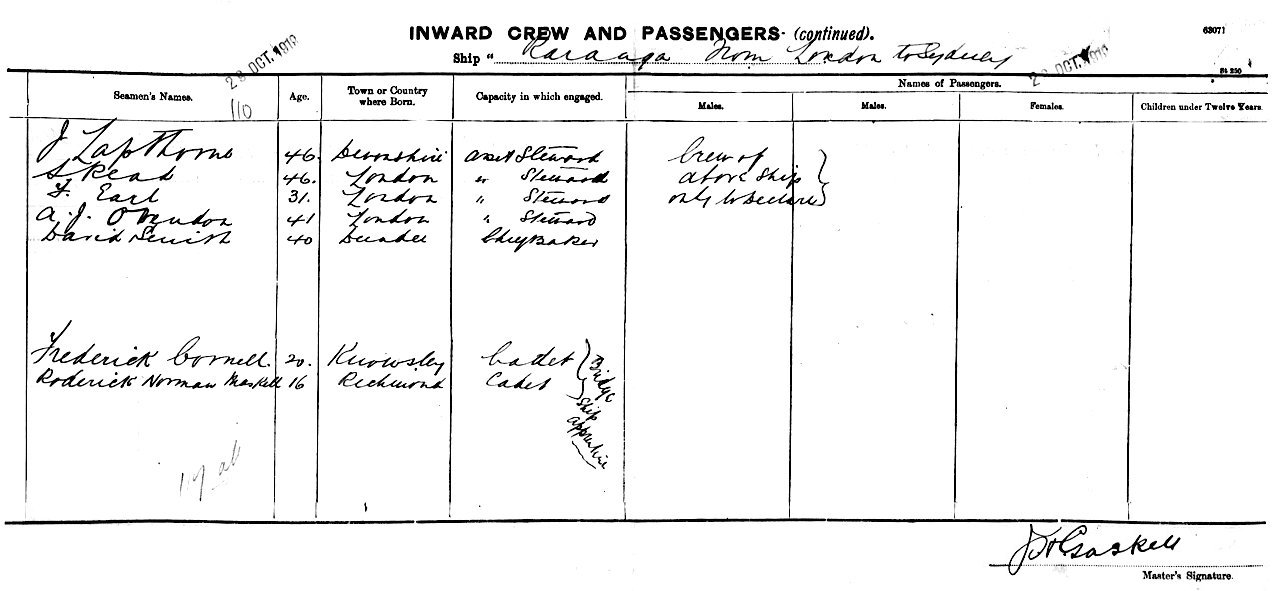 INWARD CREW AND PASSENGERS (continued).
63071
Ship " Karanga From London to Sydney
28 OCT. 1919
2 OCT. 1919
St 250
Seamen's Names. Age. Town or Country where Born. Capacity in which engaged. Names of Passengers.
Males. Males. Females. Children under Twelve Years.
110
J Lapthorne 46. Devonshire Asst Steward Crew of
S Read 46. London " Steward above ship
F. Earl 31. London " Steward only to Declare
A. J. Ovendon 41 London " Steward
David 40 Dundee Baker
Frederick Cornell. 20. Knowsley Cadet
Roderick Norman Maskell 16 Richmond Cadet
Bridge
Ship
apprentice
Gaskell
Master's Signature.